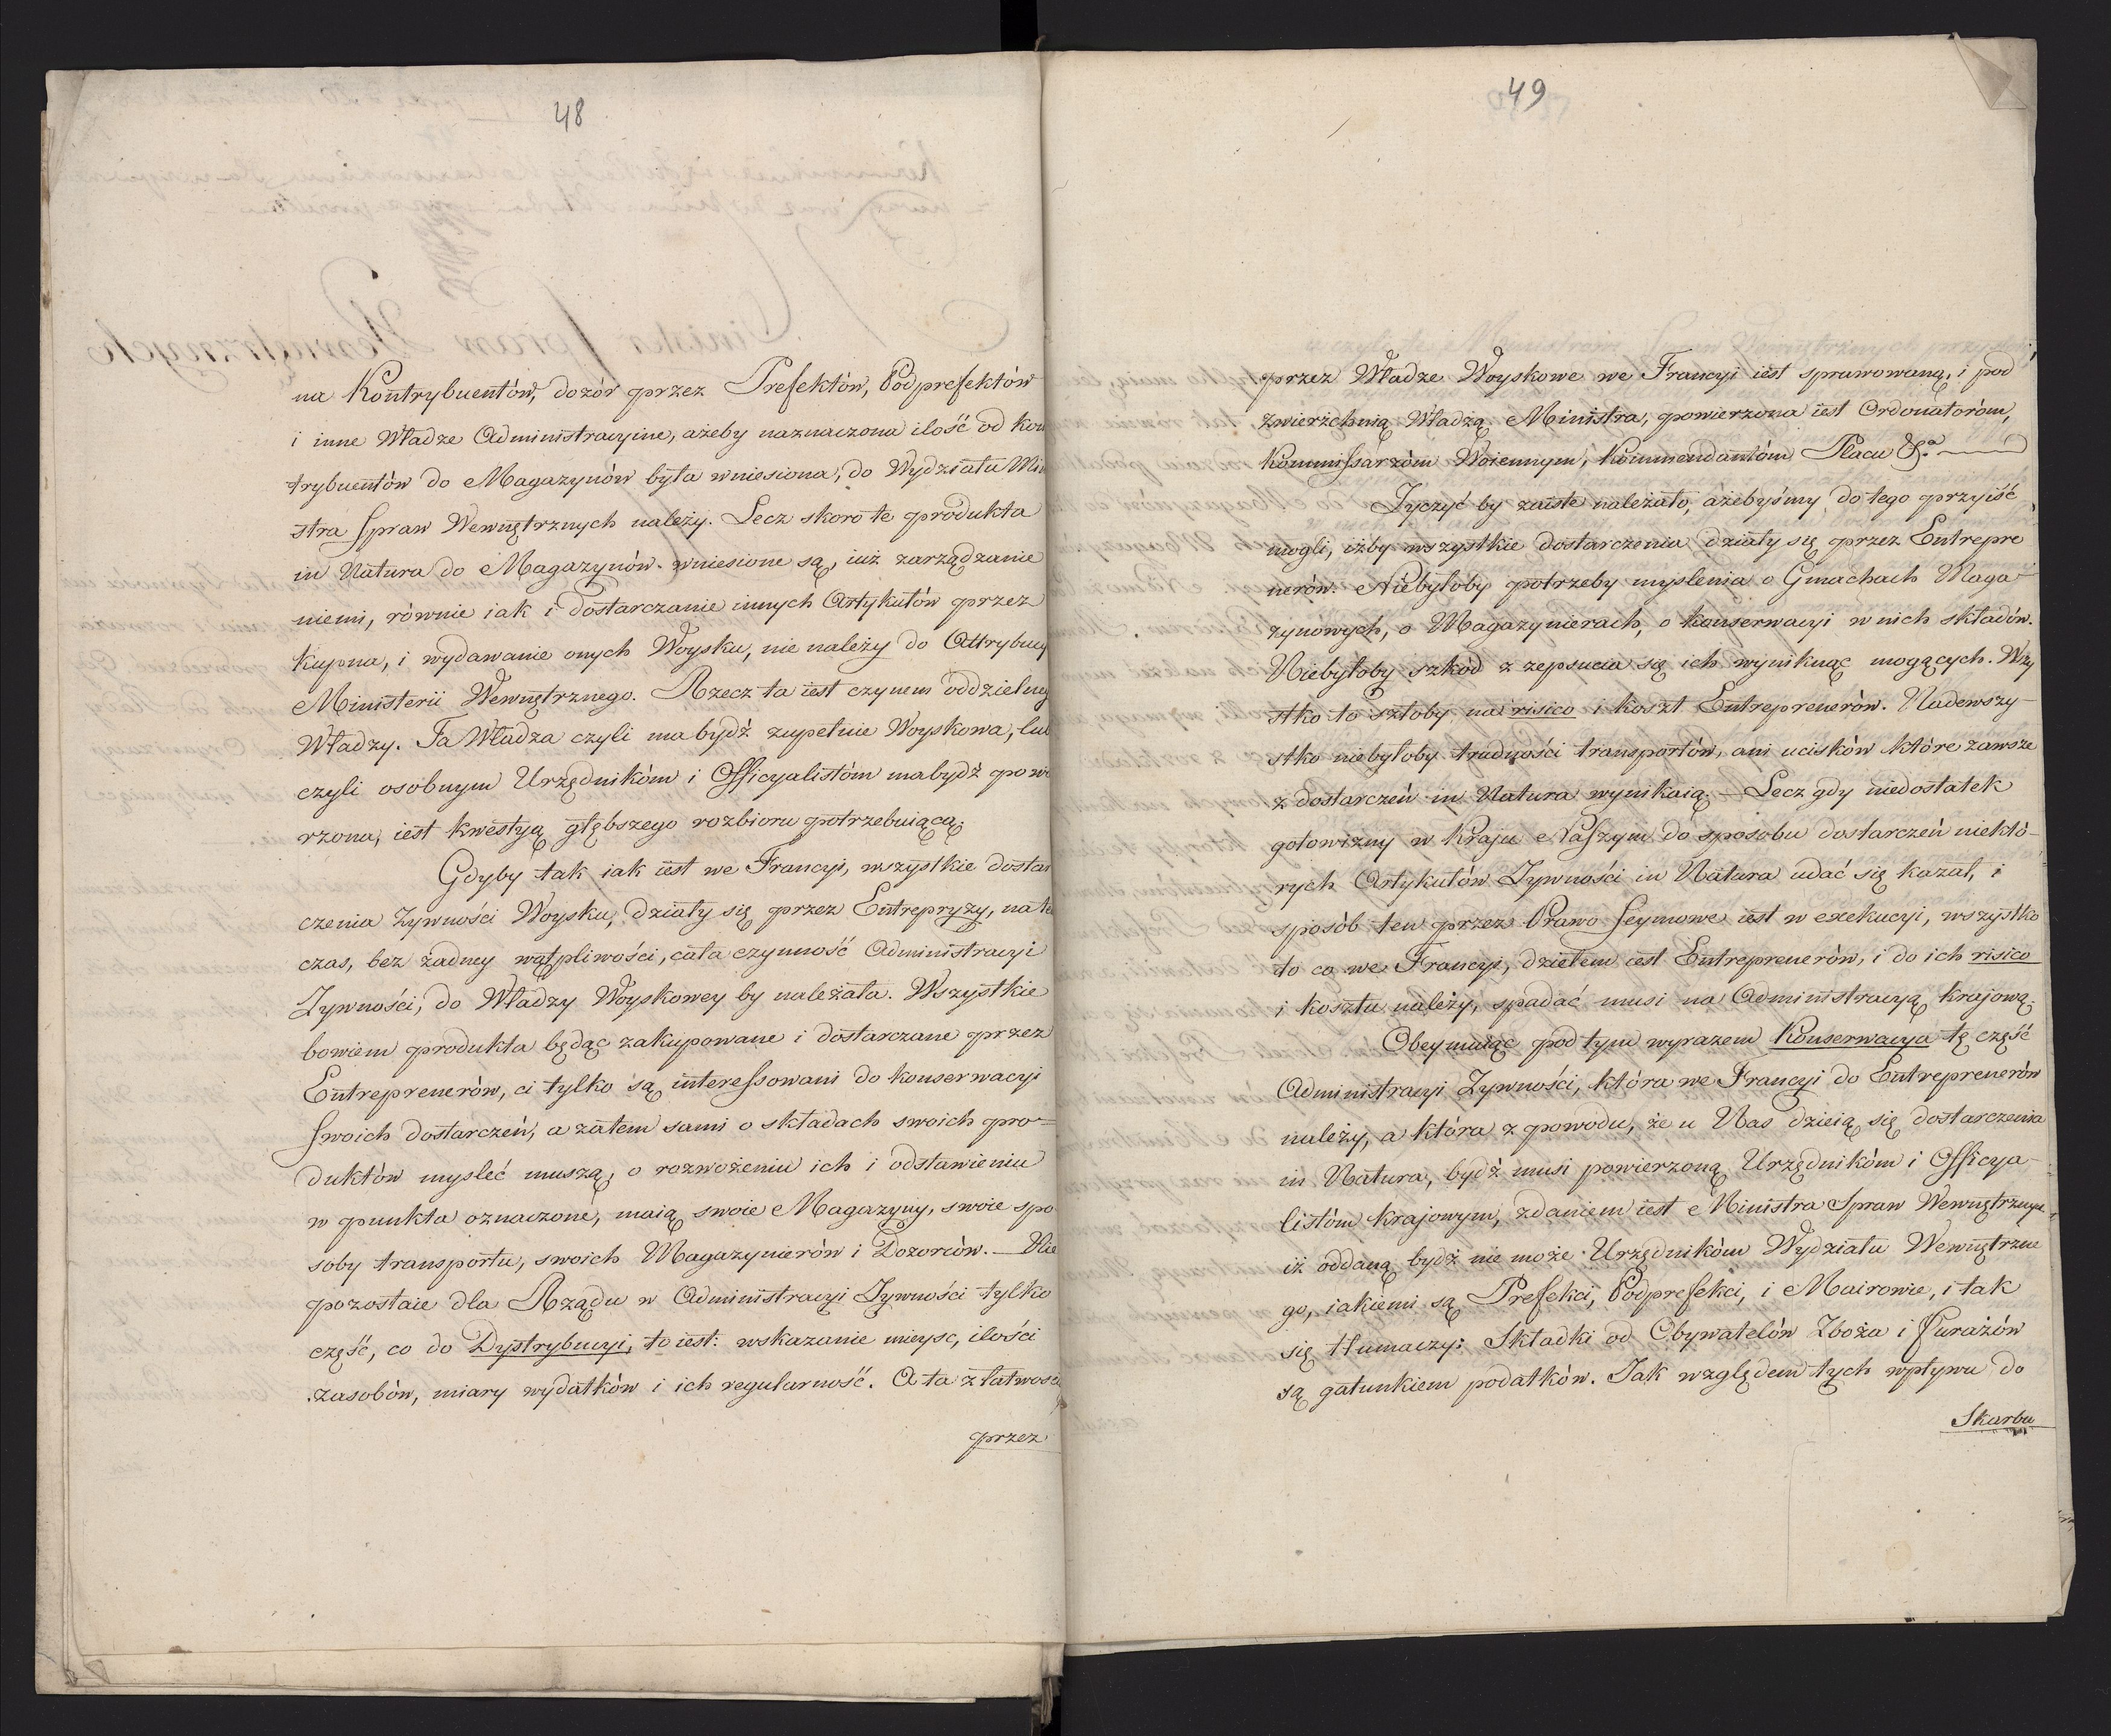 48
na Kontrybuentów, dozór przez Prefektów, Podprefektów
i inne Władze Administracyine, ażeby naznaczona ilość od kon
trybuentów do Magazynów była wniesiona, do Wydziału Mini
stra Spraw Wewnętrznych należy. Lecz skoro te produkta
in Natura do Magazynów wniesione są, iuż zarządzanie
niemi, równie iak i dostarczanie innych Artykułów przez
kupna, i wydawanie onych Woysku, nie należy do Attrybucy
Ministerii Wewnętrznego. Rzecz ta iest czynem oddzielney
Władzy. Ta Władza czyli ma bydź zupełnie Woyskowa, lub
czyli osobnym Urzędnikóm i Officyalistóm ma bydź powie
rzona, iest kwestyą głębszego rozbioru potrzebuiącą.
Gdyby tak iak iest we Francyi, wszystkie dostar
czenia Zywności Woysku, działy się przez Entrepryzy, na ten
czas, bez żadney wątpliwości, cała czynność Administracyi
Zywności, do Władzy Woyskowey by należała. Wszystkie
bowiem produkta będąc zakupowane i dostarczane przez
Entreprenerów, ci tylko są interessowani do konserwacyi
swoich dostarczeń, a zatem sami o składach swoich pro=
duktów mysleć muszą, o rozwożeniu ich i odstawieniu
w punkta oznaczone, maią swoie Magazyny, swoie spo
soby transportu, swoich Magazynierów i Dozorców. — Nie
pozostaie dla Rządu w Administracyi Zywności tylko
część, co do Dystrybucyi, to iest: wskazanie mieysc, ilości
zasobów, miary wydatków i ich regularność. A ta z łatwością
przez
49
przez Władze Woyskowe we Francyi iest sprawowaną, i pod
zwierzchnią Władzą Ministra, powierzona iest Ordonatoróm,
Kommissarzóm Woiennym, Kommendantóm Placu &a
Zyczyć by zaiste należało, ażebyśmy do tego przyiść
mogli, iżby wszystkie dostarczenia działy się przez Entrepre
nerów. Niebyłoby potrzeby myslenia o Gmachach Maga-
zynowych, o Magazynierach, o konserwacyi w nich składów.
Niebyłoby szkod z zepsucia się ich wyniknąc mogących. Wszy
stko to szłoby na risico i koszt Entreprenerów. Nadewszy-
stko niebyłoby trudności transportów, ani ucisków które zawsze
z dostarczeń in Natura wynikaią. — Lecz gdy niedostatek
gotowizny w Kraju Naszym do sposobu dostarczeń niektó-
rych Artykułów Zywności in Natura udać się kazał, i
sposób ten przez Prawo Seymowe iest w exekucyi, wszystko
to co we Francyi, dziełem iest Entreprenerów, i do ich risico
i kosztu należy, spadać musi na Administracyą krajową.
Obeymuiąc pod tym wyrazem Konserwacya tę część
Administracyi Zywności, która we Francyi do Entreprenerów
należy, a która z powodu, że u Nas dzieią się dostarczenia
in Natura, bydź musi powierzoną Urzędnikóm i Officya-
listóm krajowym, zdaniem iest Ministra Spraw Wewnętrznych
iż oddaną bydź nie może Urzędnikóm Wydziału Wewnętrzne
go, iakiemi są Prefekci, Podprefekci, i Mairowie, i tak
się tłumaczy: Składki od Obywatelów Zboża i Furażów
są gatunkiem podatków. Jak względem tych wpływu do
Skarbu